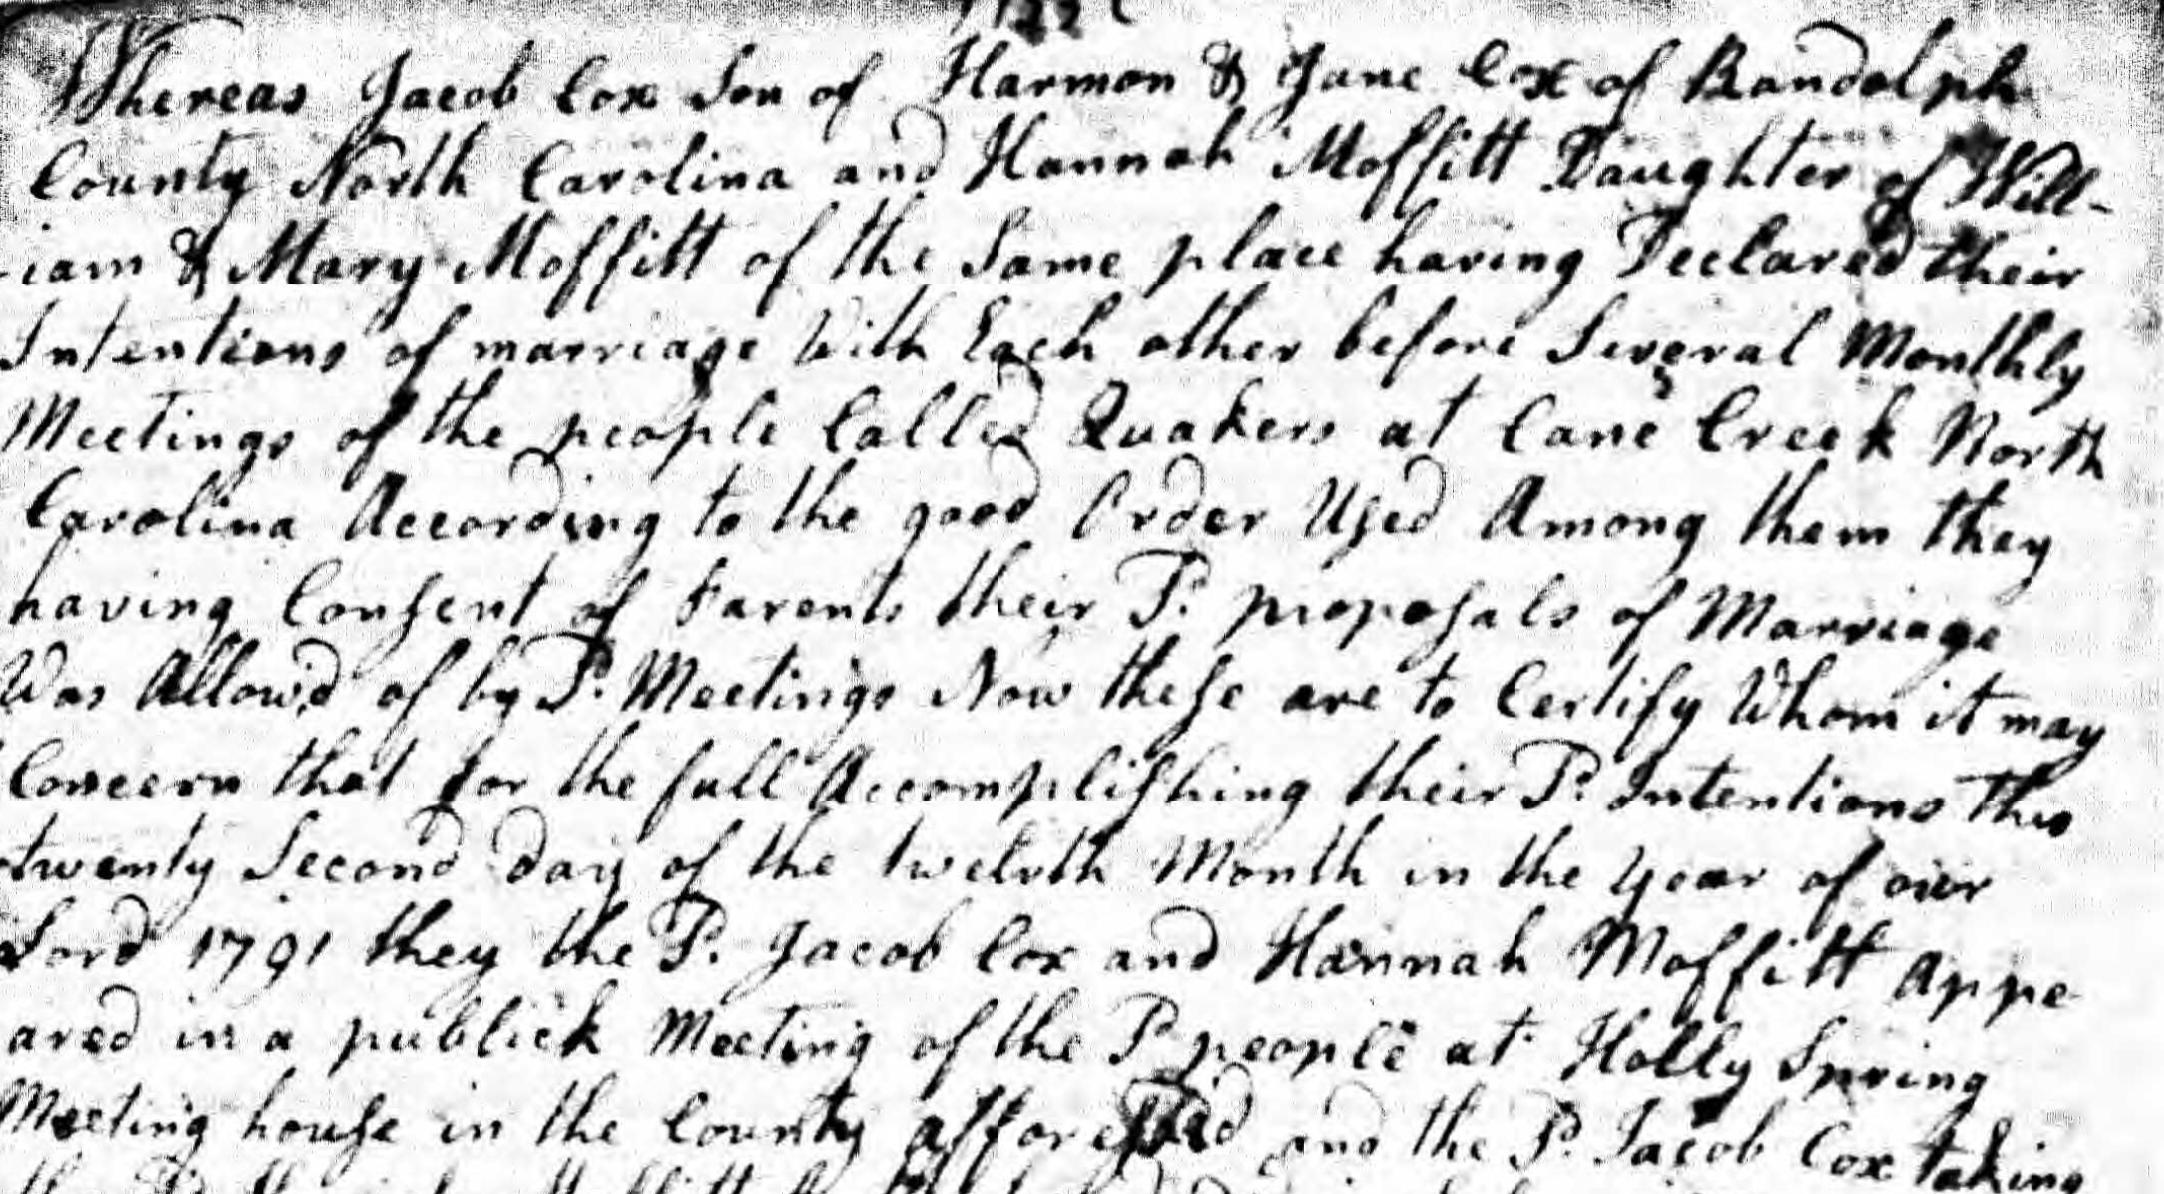 Whereas Jacob Cox Son of Harmon & Jane Cox of Randolph
County North Carolina and Hannah Moffitt Daughter of Will-
-iam & Mary Moffitt of the Same place having Declared their
Intentions of marriage With Each other before Several Monthly
Meetings of the people Called Quakers at Cane Creek North
Carolina According to the good Order Used Among them they
having Consent of Parents their Sd. proposals of Marriage
Was Allow'd of by Sd. Meetings Now these are to Certify Whom it may
Concern that for the full Accomplishing their Sd. Intentions this
twenty Second Day of the twelvth Month in the Year of our
Lord 1791 they the Sd. Jacob Cox and Hannah Moffitt Appe
ared in a publick Meeting of the Sd people at Holly Spring
Meeting house in the County afforesaid and the Sd. Jacob Cox taking